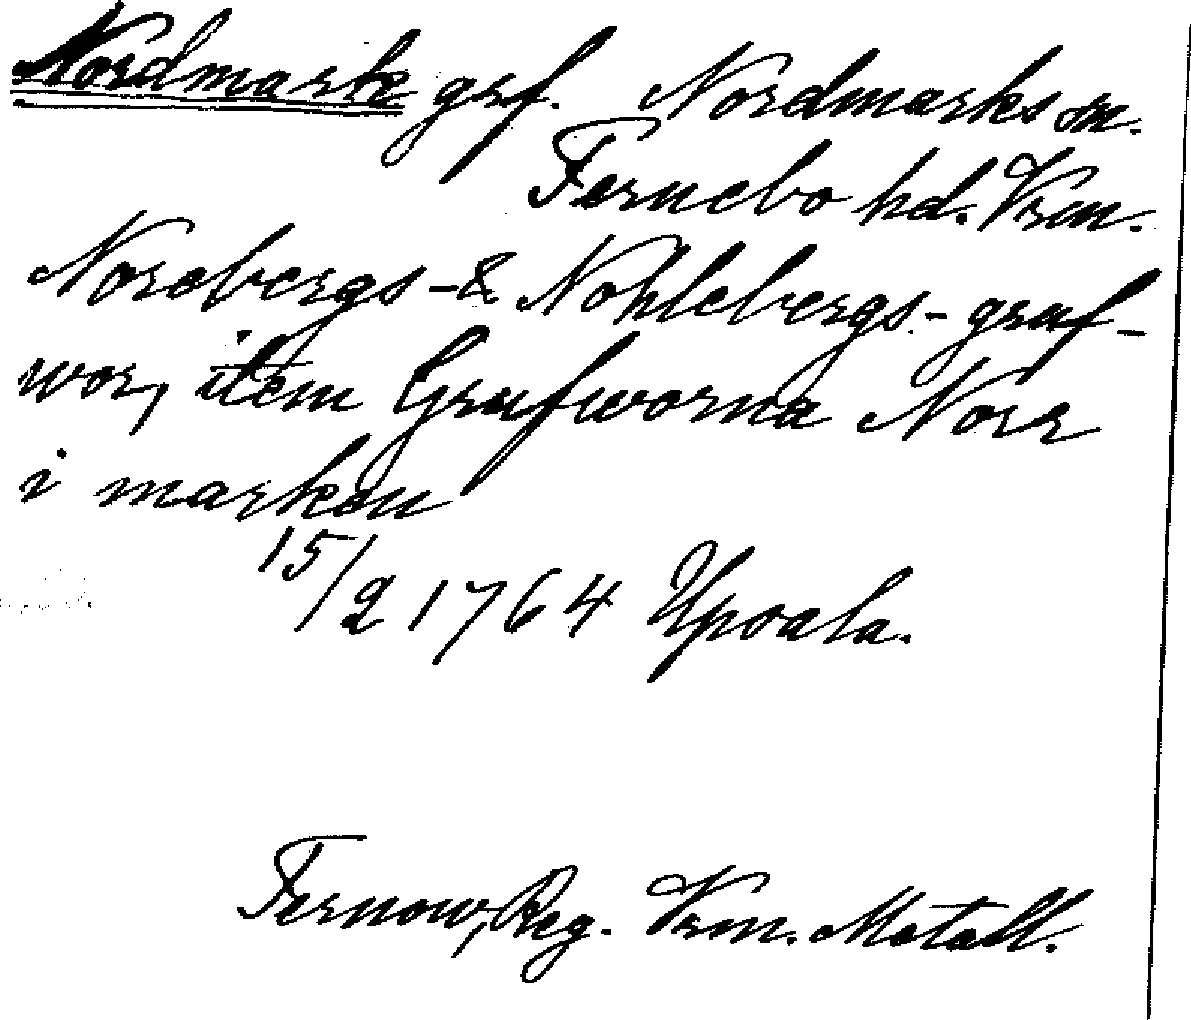 Nordmark grf. Nordmarks sn.
Fernebo hd. Vrm.
Norebergs- & Nohlebergs- graf-
wor, item Grafworna Norr
i marken
15/2 1764 Upsala.
Fernow, Reg. Vrm. Metall.